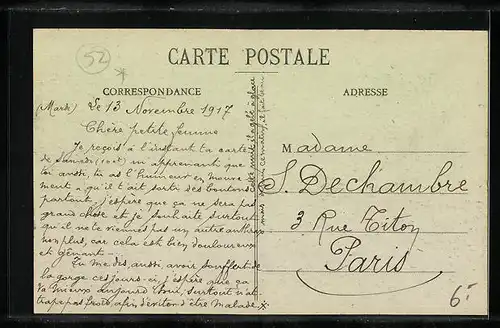 52
CARTE POSTALE
CORRESPONDANCE
ADRESSE
(Mardi) Le 13 Novembre 1917
Chère petite femme
Je reçois à l'instant ta carte
de Samedi (10ct) m'apprenant que
toi aussi, tu as l'humeur en mouve-
ment & qu'il t'ait sorti des boutons
partout, j'espère que ça ne sera pas
grand chose et je souhaite surtout
qu'il ne te viennes pas un autre anthrax
non plus, car cela est bien douloureux
et gênant.
Tu me dis, aussi, avoir souffert de
la gorge ces jours-ci, j'espère que ça
va mieux aujourd'hui, surtout n'at-
trape pas froid, afin d'éviter d'être malade.
cette nuit il a gelé à glace
mais ce matin, il fait beau
Madame
S. Dechambre
3 Rue Titon
Paris
6-